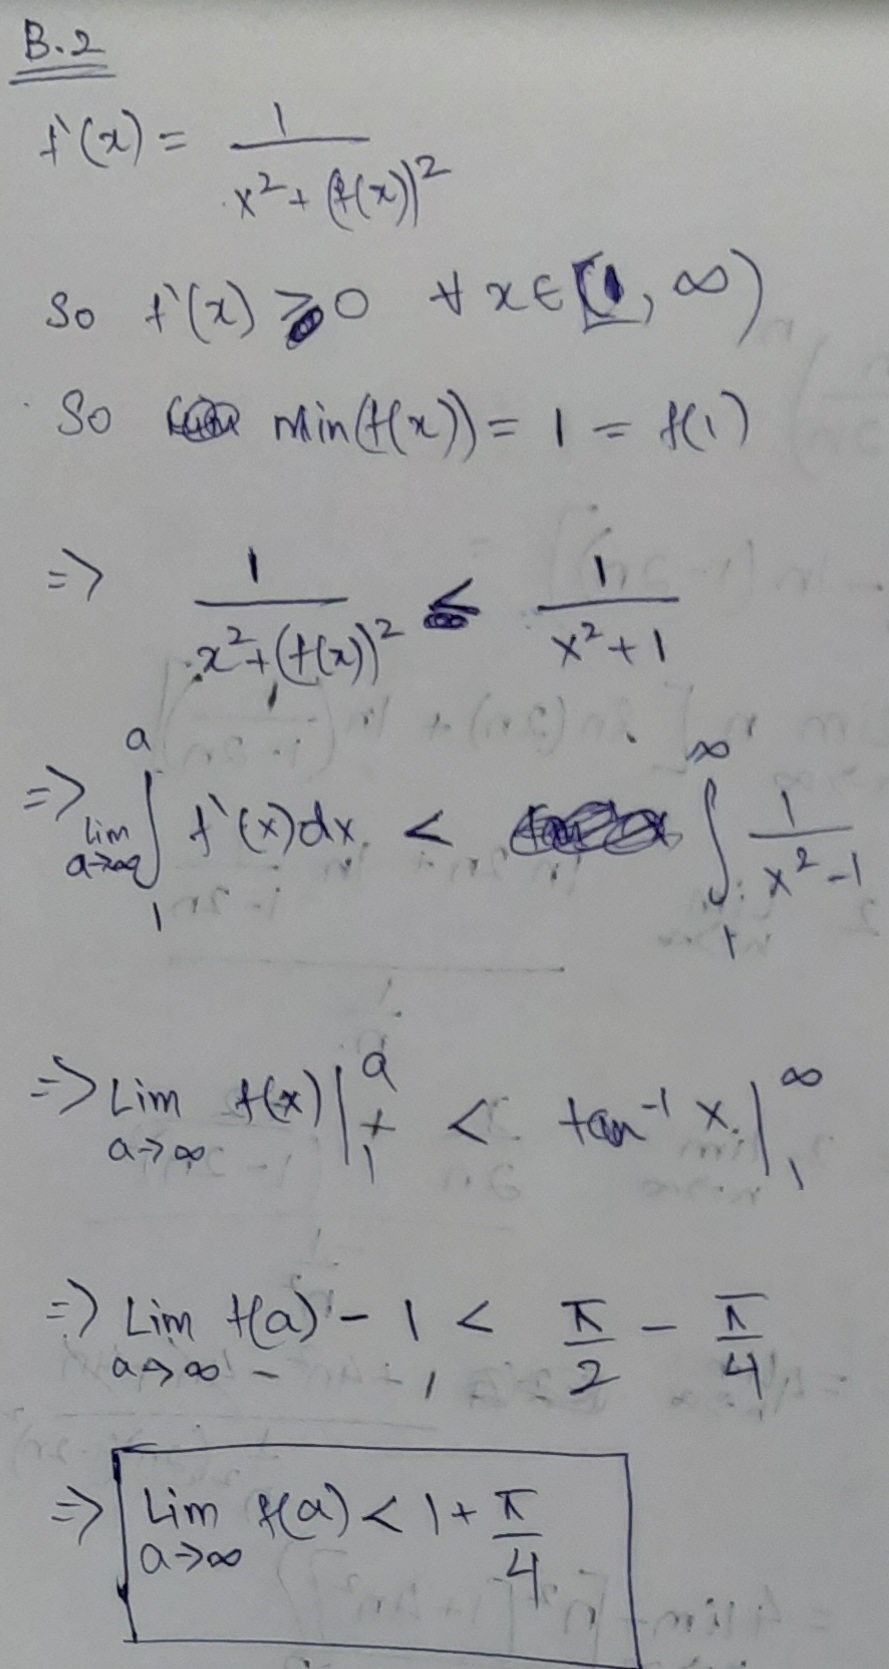 B.2
f'(x) = 1 / x² + (f(x))²
So f'(x) ≥ 0 ∀ x ∈ [1, ∞)
So Min(f(x)) = 1 = f(1)
=> 1 / x² + (f(x))² ≤ 1 / x² + 1
=> lim a→∞ ∫₁ᵃ f'(x) dx < ∫₁^∞ 1 / x² - 1
=> Lim a→∞ f(x) |₁ᵃ < tan⁻¹ x |₁^∞
=> Lim a→∞ f(a) - 1 < π/2 - π/4
=> Lim a→∞ f(a) < 1 + π/4